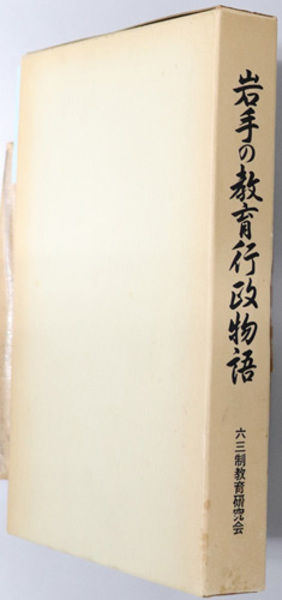 岩手の教育行政物語
六三制教育研究会